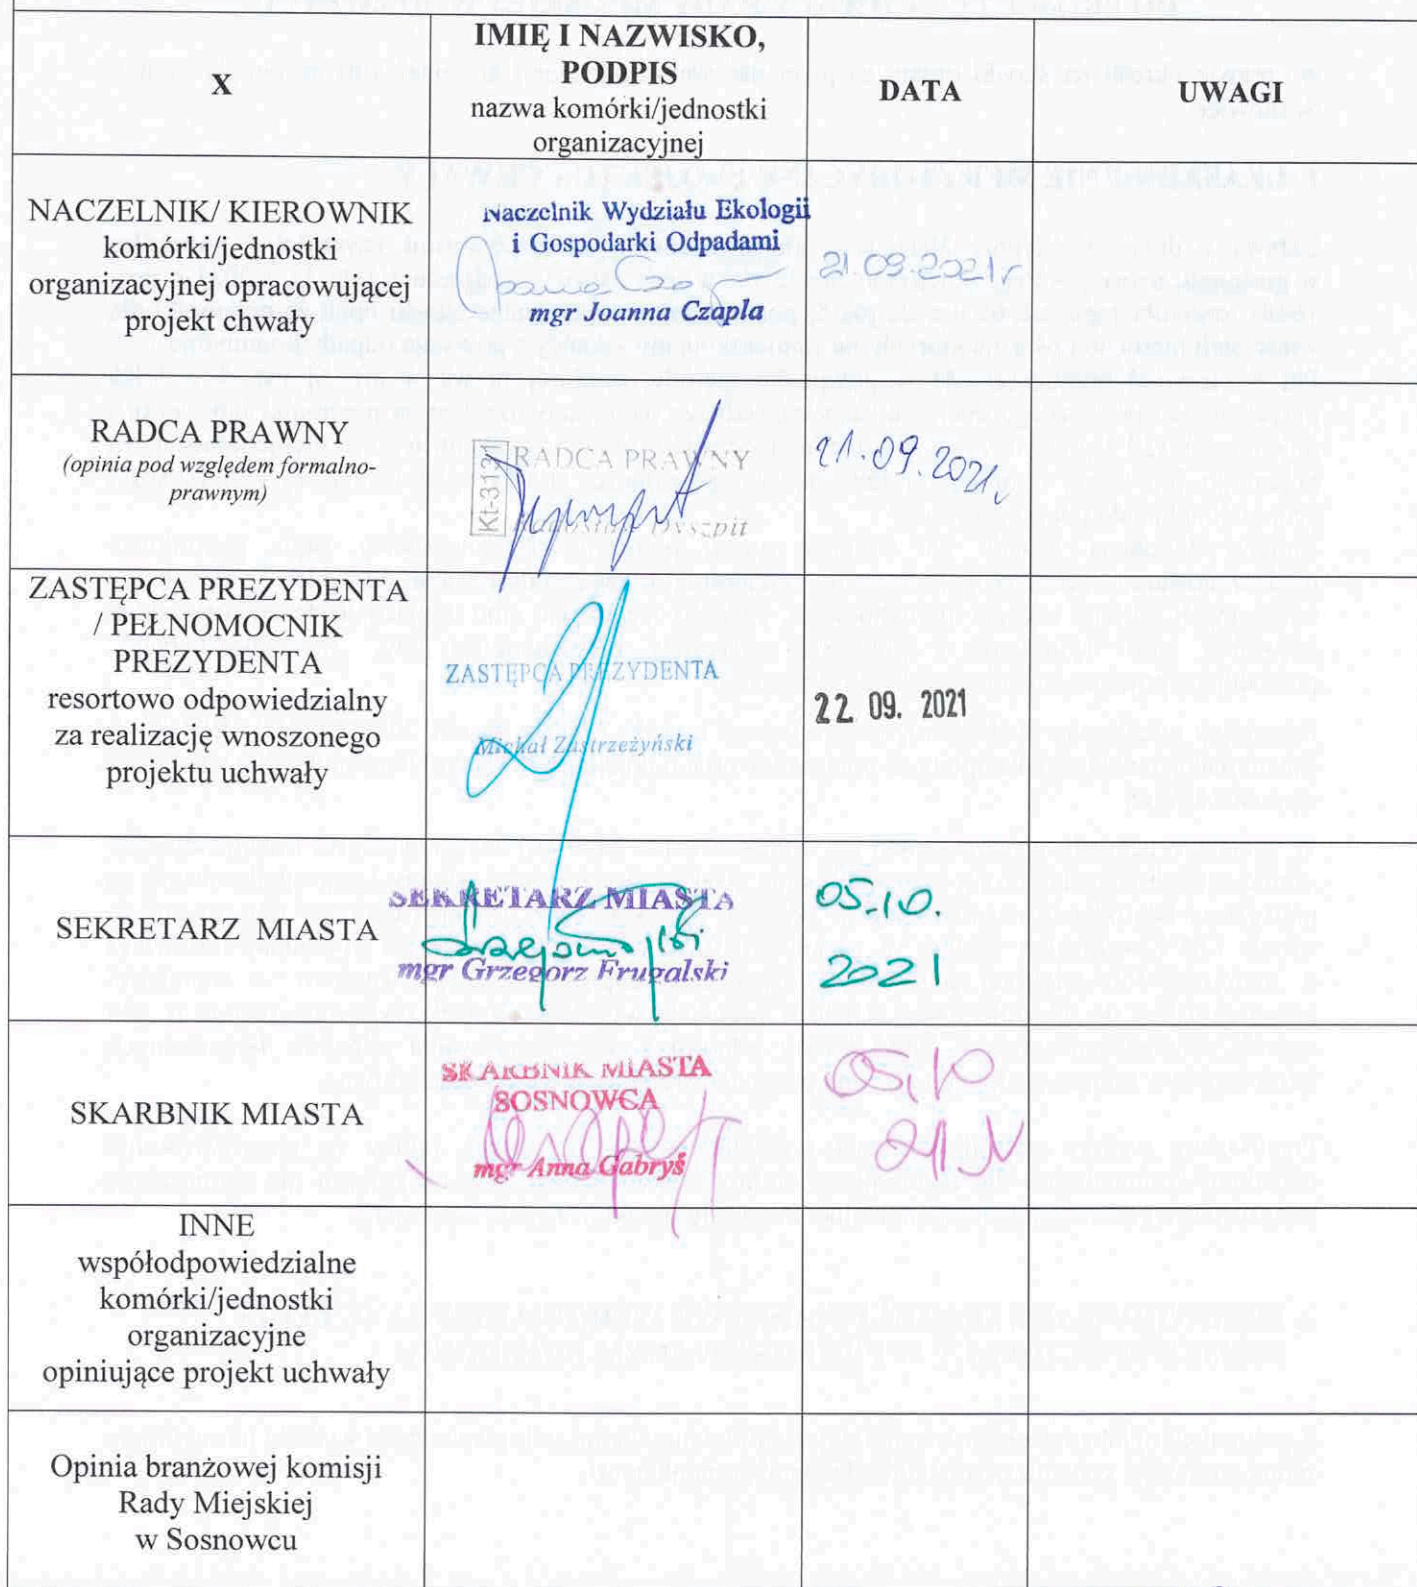 X
IMIĘ I NAZWISKO,
PODPIS
nazwa komórki/jednostki
organizacyjnej
DATA
UWAGI
NACZELNIK/ KIEROWNIK
komórki/jednostki
organizacyjnej opracowującej
projekt chwały
Naczelnik Wydziału Ekologii
i Gospodarki Odpadami
mgr Joanna Czapla
21.09.2021r
RADCA PRAWNY
(opinia pod względem formalno-
prawnym)
Kt-3121
RADCA PRAWNY
Dyszpit
21.09.2021r
ZASTĘPCA PREZYDENTA
/ PEŁNOMOCNIK
PREZYDENTA
resortowo odpowiedzialny
za realizację wnoszonego
projektu uchwały
ZASTĘPCA PREZYDENTA
Michał Zastrzeżyński
22. 09. 2021
SEKRETARZ MIASTA
SEKRETARZ MIASTA
mgr Grzegorz Frugalski
05.10.
2021
SKARBNIK MIASTA
SKARBNIK MIASTA
SOSNOWCA
mgr Anna Gabryś
05.10
21 r
INNE
współodpowiedzialne
komórki/jednostki
organizacyjne
opiniujące projekt uchwały
Opinia branżowej komisji
Rady Miejskiej
w Sosnowcu